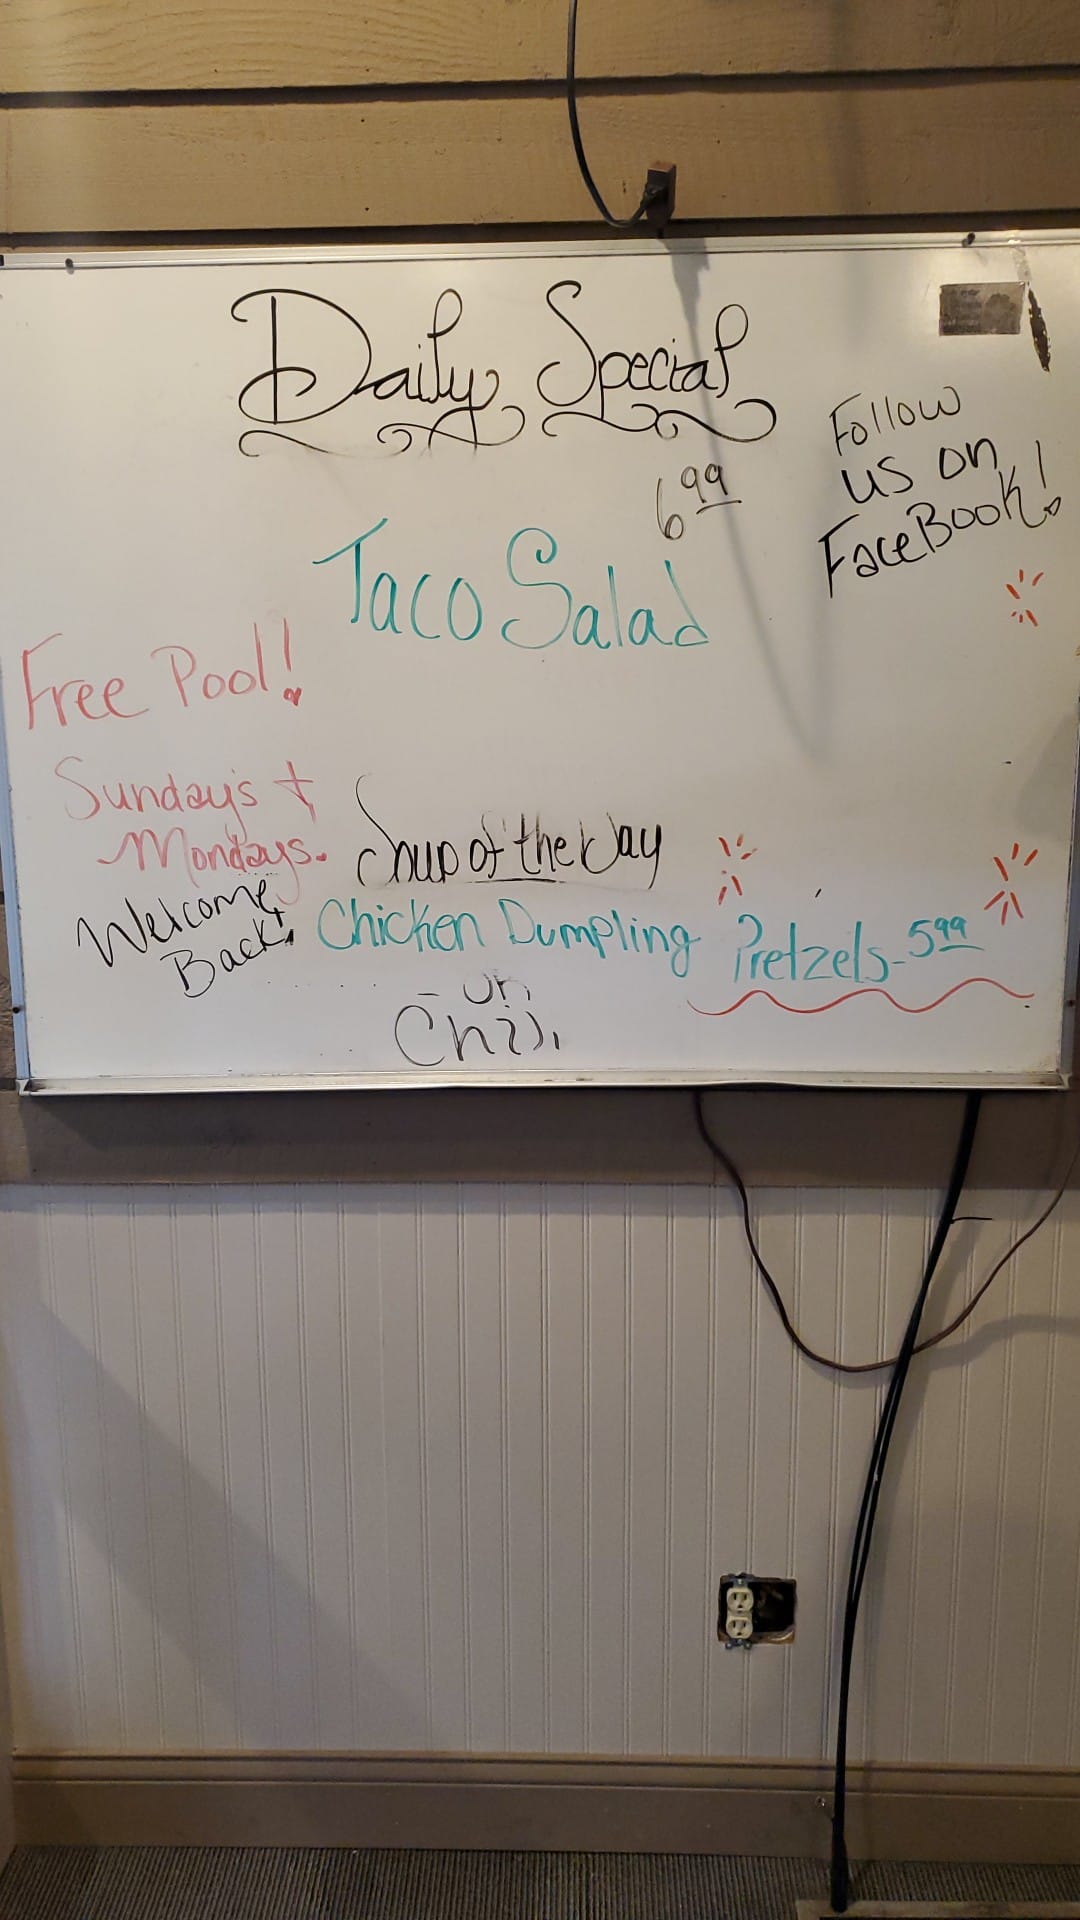 Daily Special
6 99
Taco Salad
Follow
us on
FaceBook!
Free Pool!
Sunday's +
Mondays.
Welcome
Back!
Soup of the Day
Chicken Dumpling
- or
Chili
Pretzels - 5 99